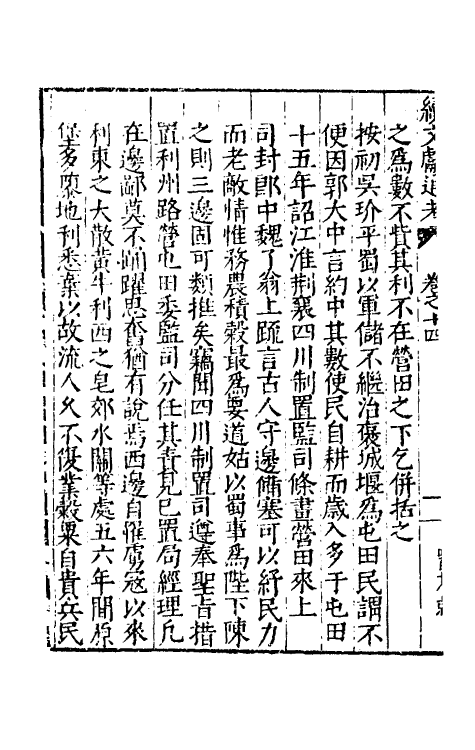 續文獻通考 卷之十四
之為數不貲其利不在營田之下乞併括之
按初吳玠平蜀以軍儲不繼治褒城堰為屯田民謂不
便因郭大中言約中其數使民自耕而歲入多于屯田
十五年詔江淮荆襄四川制置監司條畫營田來上
司封郎中魏了翁上疏言古人守邊備塞可以紓民力
而老敵情惟務農積穀最為要道姑以蜀事為陛下陳
之則三邊固可類推矣竊聞四川制置司遵奉聖旨措
置利州路營屯田委監司分任其責見已置局經理凡
在邊鄙莫不踊躍思奮猶有說焉西邊自罹虜寇以來
利東之大散黃牛利西之皂郊水關等處五六年間原
堡多隳地利悉棄以故流人久不復業穀粟自貴兵民